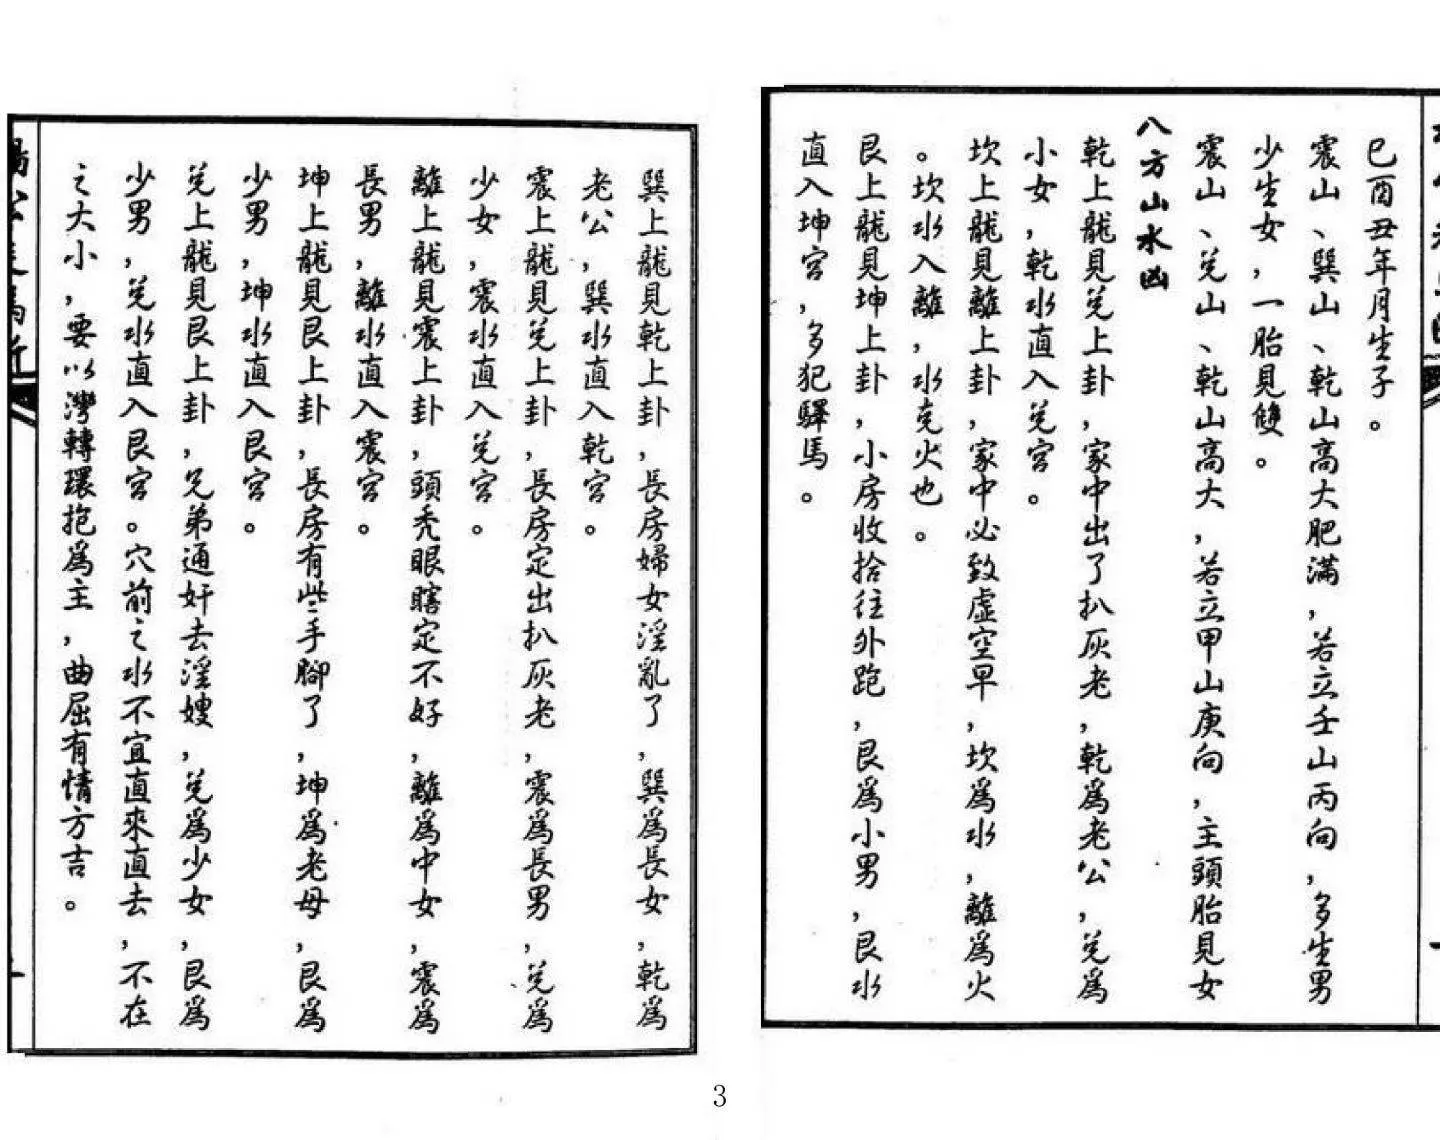 巳酉丑年月生子。
震山、巽山、乾山高大肥滿，若立壬山丙向，多生男
少生女，一胎見雙。
震山、兌山、乾山高大，若立甲山庚向，主頭胎見女
八方山水凶
乾上龍見兌上卦，家中出了扒灰老，乾為老公，兌為
小女，乾水直入兌宮。
坎上龍見離上卦，家中必致虛空早，坎為水，離為火
。坎水入離，水克火也。
艮上龍見坤上卦，小房收拾往外跑，艮為小男，艮水
直入坤宮，多犯驛馬。
巽上龍見乾上卦，長房婦女淫亂了，巽為長女，乾為
老公，巽水直入乾宮。
震上龍見兌上卦，長房定出扒灰老，震為長男，兌為
少女，震水直入兌宮。
離上龍見震上卦，頭禿眼瞎定不好，離為中女，震為
長男，離水直入震宮。
坤上龍見艮上卦，長房有些手腳了，坤為老母，艮為
少男，坤水直入艮宮。
兌上龍見艮上卦，兄弟通奸去淫嫂，兌為少女，艮為
少男，兌水直入艮宮。穴前之水不宜直來直去，不在
之大小，要以灣轉環抱為主，曲屈有情方吉。
3